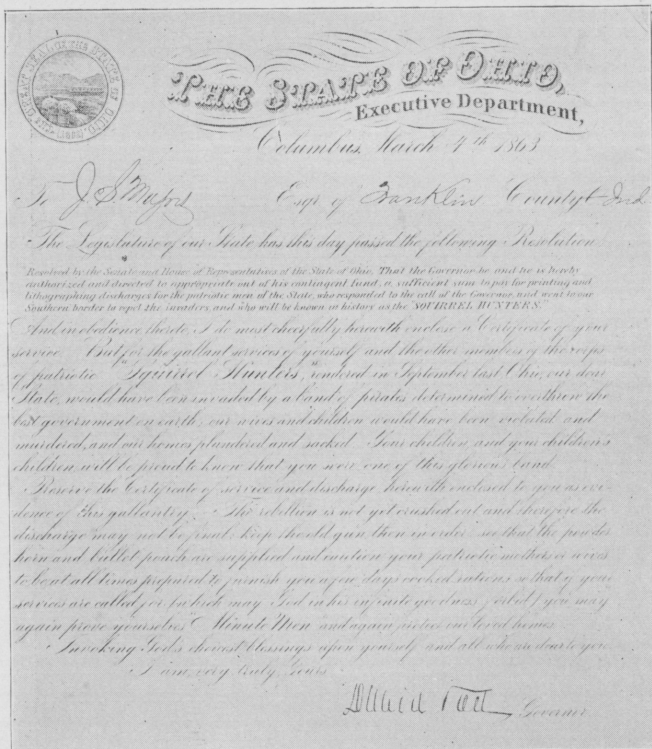 THE GREAT SEAL OF THE STATE OF OHIO
THE STATE OF OHIO,
Executive Department,
Columbus, March 4th 1863
To J. S. Esqr. of Franklin County Ind
The Legislature of our State has this day passed the following Resolution
Resolved by the Senate and House of Representatives of the State of Ohio, That the Governor be and he is hereby
authorized and directed to appropriate out of his contingent fund, a sufficient sum to pay for printing and
lithographing discharges for the patriotic men of the State, who responded to the call of the Governor, and went to our
Southern border to repel the invaders, and who will be known in history as the "SQUIRREL HUNTERS."
And in obedience thereto, I do most cheerfully herewith enclose a Certificate of your
service. But for the gallant services of yourself and the other members of the corps
of patriotic "Squirrel Hunters," rendered in September last, Ohio, our dear
State, would have been invaded by a band of pirates determined to overthrow the
best government on earth; our wives and children would have been violated and
murdered, and our homes plundered and sacked. Your children, and your children's
children, will be proud to know that you were one of this glorious band.
Preserve the Certificate of service and discharge, herewith enclosed to you as evi-
dence of this gallantry. The rebellion is not yet crushed out and therefore the
discharge may not be final; keep the old gun then in order; see that the powder
horn and bullet pouch are supplied and caution your patriotic mothers or wives
to be at all times prepared to furnish you a few days cooked rations so that if your
services are called for (which may God in his infinite goodness forbid) you may
again prove yourselves "Minute Men" and again protect our loved homes.
Invoking God's choicest blessings upon yourself and all who are dear to you.
I am, very truly, Yours
David Tod, Governor